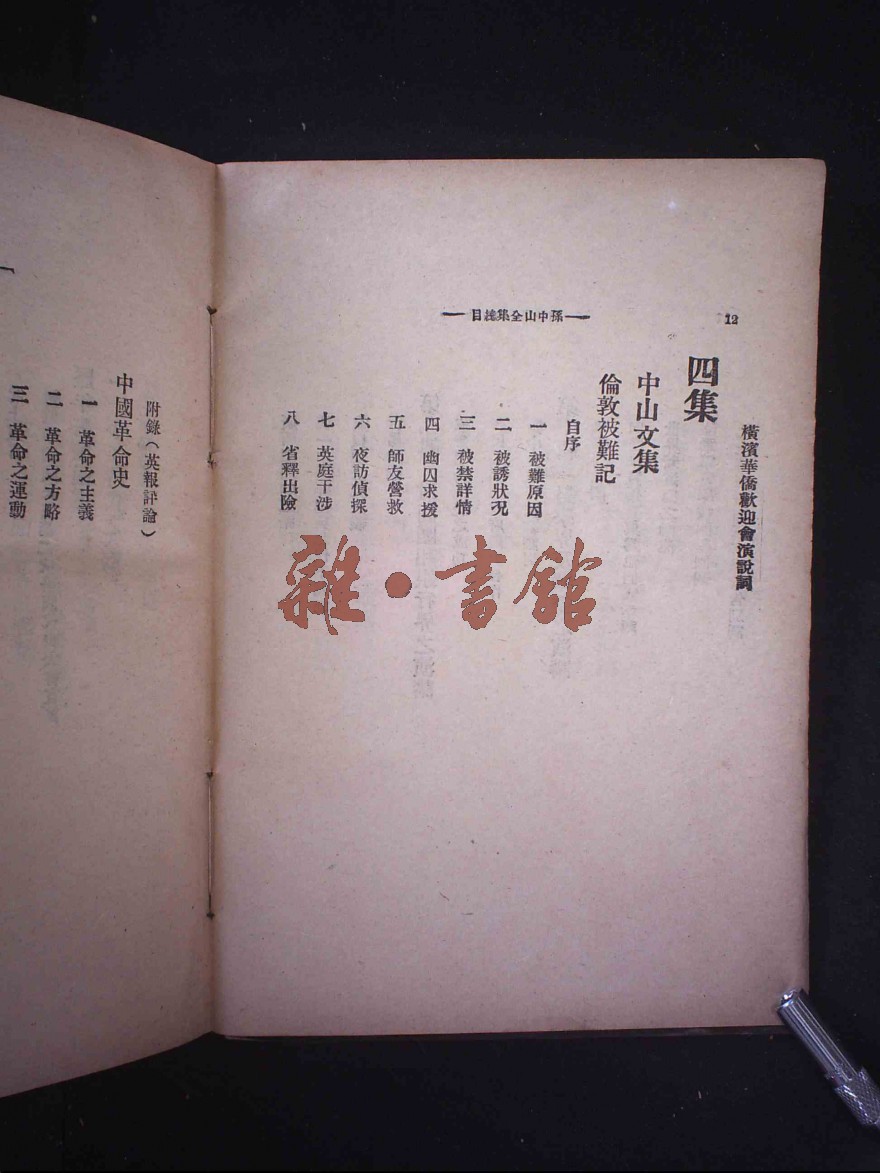 12
孫中山全集總目
橫濱華僑歡迎會演說詞
四集
中山文集
倫敦被難記
自序
一 被難原因
二 被誘狀況
三 被禁詳情
四 幽囚求援
五 師友營救
六 夜訪偵探
七 英庭干涉
八 省釋出險
附錄(英報評論)
中國革命史
一 革命之主義
二 革命之方略
三 革命之運動
雜·書館